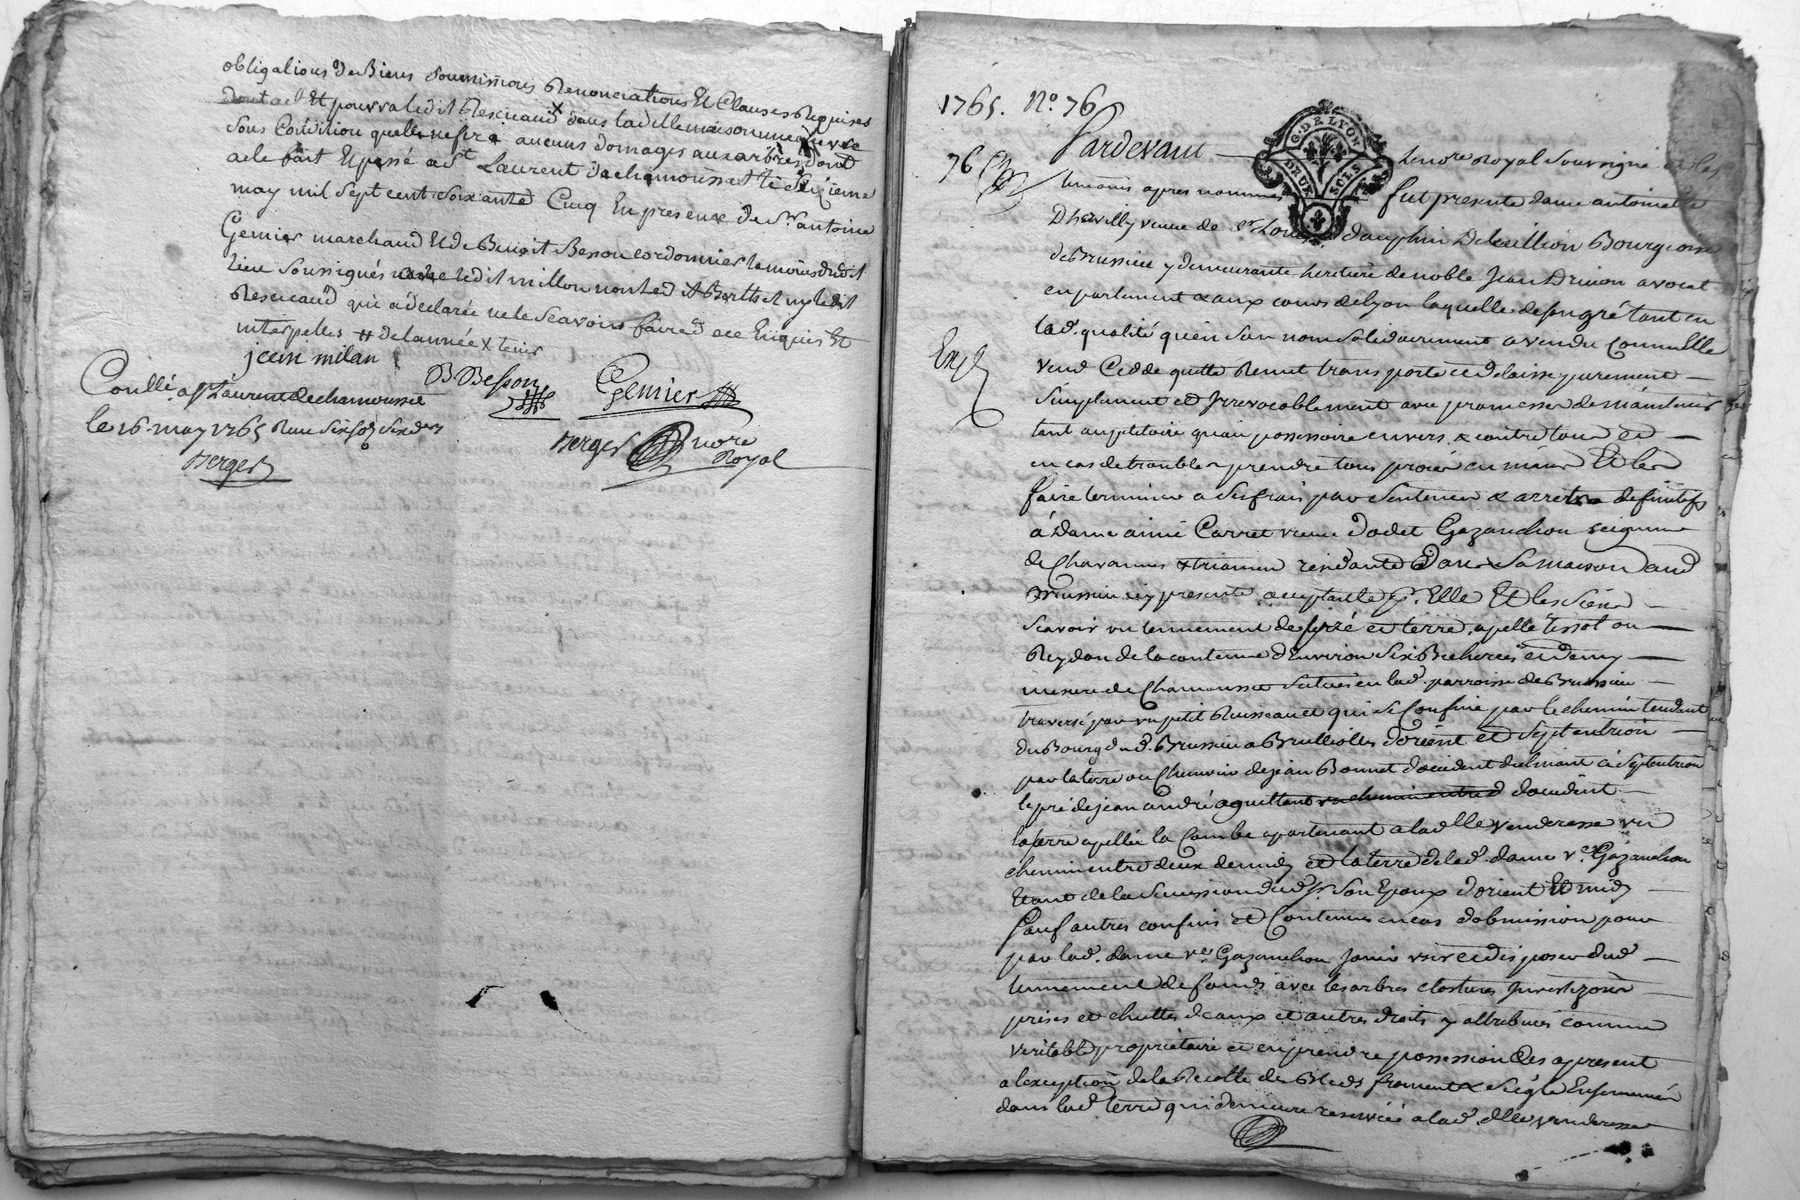 obligations de Biens Soumissions Renonciations Et Clauses Requises
Et pourra ledit Rescicaud X dans ladille maison
Sous Condition quelle aucuns domages aux arbres dont
acte fait Et passé a St Laurent de chamousset le seizieme
may mil Sept cent Soixante Cinq En presence de Sr antoine
Gemier marchand Et de Benoit Besson cordonnier temoins dudit
lieu Soussignés avec ledit millon non led ny ledit
qui a declarée ne le Scavoir faire de ce Enquis Et
interpellés # de lannée X tenir
jean milan
B Besson
Gemier
Conllé a St Laurent de chamousset
le 16 may 1765 Reçu Six sols Six den
Berger
Berger nore
Royal
1765. No. 76
Pardevant
G. DE LYON
DEUX SOLS
Nore Royal Soussigné et les
76
temoins apres nommés fut presente dame antoinette
Dhervilly veuve de Sr Louis dauphin De Bourgeoise
de Brussieu y demeurante heritiere de noble Jean Drivon avocat
en parlement & aux cours de lyon laquelle de son gré tant en
lad. qualité qu'en Son nom Solidairement a vendu Comme Elle
Exp
vend Cedde quitte Remet transporte et delaisse purement
Simplement et Irrevocablement avec promesse de maintenir
tant au petitoire qu'au possessoire envers & contre tous et
en cas de trouble prendre tous procés en main Et les
faire terminer a Ses frais par Sentence & arrets definitifs
à Dame aimé Carret veuve d'odet Gazanchon seigneur
de Chavannes & triamen residante dans Sa maison aud
Brussieu icy presente acceptante pr. Elle Et les Siens
Scavoir un tennement de pré et terre apellé tissot ou
Reydon de la contenue d'Environ Six Bicherées et demy
mesure de Chamousset Situées en lad. parroisse de Brussieu
traversé par un petit Ruisseau et qui Se Confine par le chemin tendant
du Bourg dud. Brussieu a Brullioles d'orient et Septentrion
par la terre ou Chenevier de jean Bonnet d'occident declinant à Septentrion
le pré de jean andré aguittant un chemin entre d d'occident
la terre apellée la Combe apartenant a lad elle venderesse un
chemin entre deux de midy et la terre de lad. dame ve. Gazanchon
Etant de la Succession dud Sr. Son Epoux d'orient Et midy
Sauf autres confins et Contenues en cas d'obmission pour
par lad. dame ve Gazanchon Jouir user et disposer dud
tennement de fonds avec les arbres clostures Investizons
prises et chuttes d'eaux et autres droits y attribués comme
veritable propriétaire et en prendre possession des apresent
a l'exception de la Recolte de Bleds froment & Seigle Ensemencés
dans lad. terre qui demeure reservée a lad. elle venderesse